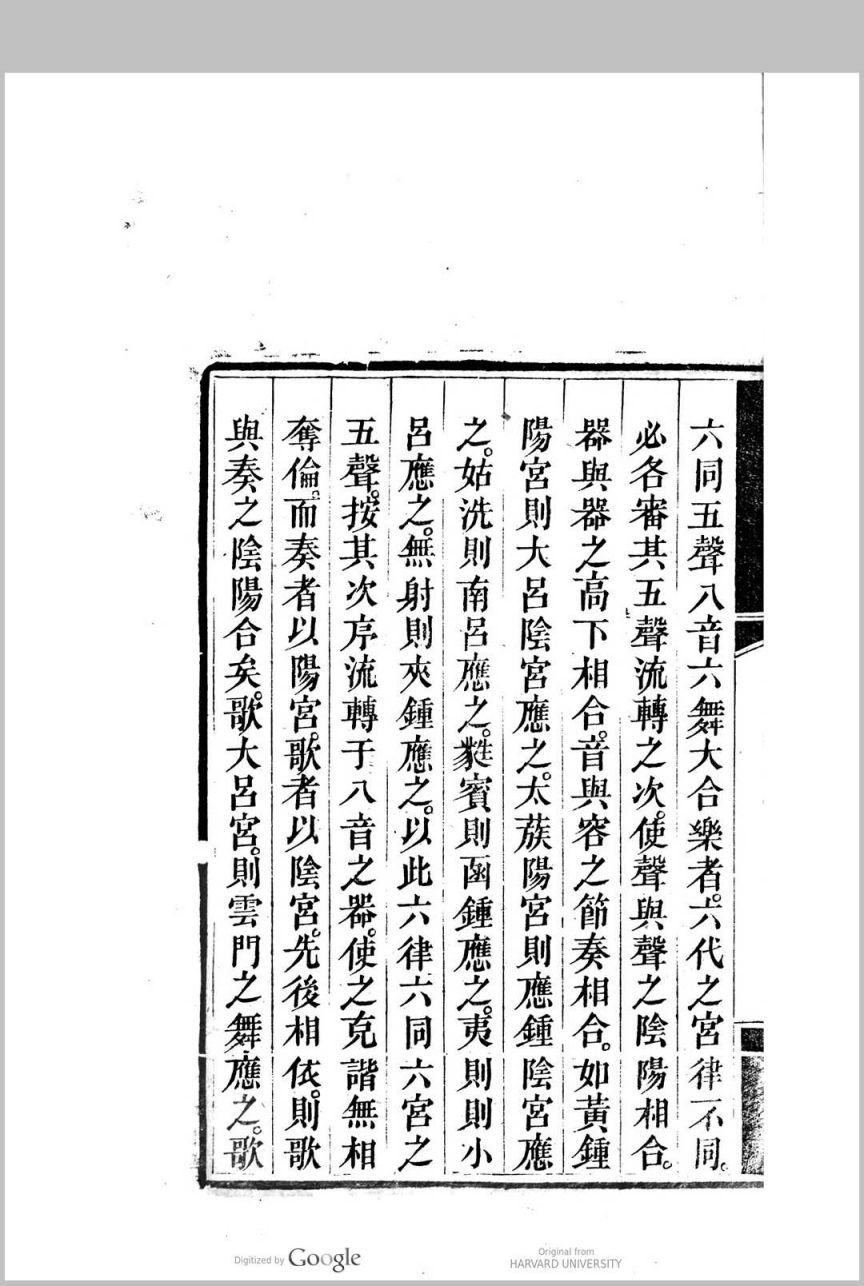 六同五聲八音六舞大合樂者。六代之宮律不同。
必各審其五聲流轉之次。使聲與聲之陰陽相合。
器與器之高下相合。音與容之節奏相合。如黃鍾
陽宮則大呂陰宮應之。太蔟陽宮則應鍾陰宮應
之。姑洗則南呂應之。蕤賓則函鍾應之。夷則則小
呂應之。無射則夾鍾應之。以此六律六同六宮之
五聲。按其次序流轉于八音之器。使之克諧無相
奪倫。而奏者以陽宮。歌者以陰宮。先後相依。則歌
與奏之陰陽合矣。歌大呂宮。則雲門之舞應之。歌
Digitized by Google
Original from
HARVARD UNIVERSITY